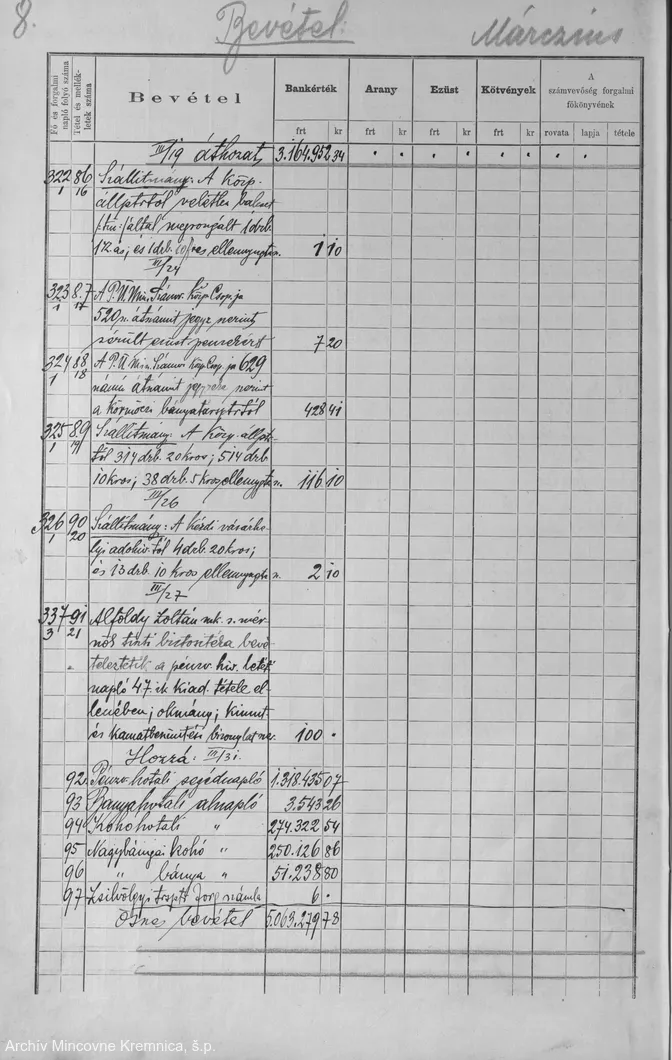 8. Bevétel: Márczius
Fő és forgalmi napló folyó száma
Tétel és mellékletek száma
Bevétel
Bankérték
Arany
Ezüst
Kötvények
A számvevőség forgalmi főkönyvének
frt kr frt kr frt kr frt kr rovata lapja tétele
III/19 áthozat 3.164.952 34
322 86 Szállítmány: A Közp.
1 16 állptrtól véletlen baleset
által megrongált 1 drb.
és 1 drb. ellennyugtán. 1 10
III/24
323 87 A P. Ü. Min. Számv. Közp. Csop. ja
1 17 520 n. átszámit jegyz. szerint
sérült ezüst pénzekért 7 20
324 88 A P. Ü. Min. Számv. Közp. Csop. ja 629
1 18 számú átszámit szerint
a körmöczi 428 41
325 89 Szállítmány: A Közp. állptr
1 19 tól 314 drb. 20 kros; 514 drb
10 kros; 38 drb. 5 kros ellennyugtán. 116 10
III/26
326 90 Szállítmány: A kézdi vásárhe-
1 20 lyi adóhiv. tól 4 drb. 20 kros;
és 13 drb. 10 kros ellennyugtán. 2 10
III/27
337 91 Alföldy Zoltán mk. s. mér-
3 21 nök tiszti biztositéka bevé-
teleztetik a pénzv. hiv. letét
napló 47. ik kiad. tétele el-
lenében; okmány; kimut.
és Kamatbeszüntetési bizonylat 100 .
Hozzá: III/31.
92. Pénzv. hivatali segédnapló 1.318.435 07
93 Bányahivatali alnapló 3.543 26
94 Kohóhivatali " 274.322 54
95 Nagybányai kohó " 250.126 86
96 " bánya " 51.238 80
97 Zsilvölgyi forg számla 6 .
Össz bevétel 5.063.279 78
Archív Mincovne Kremnica, š.p.